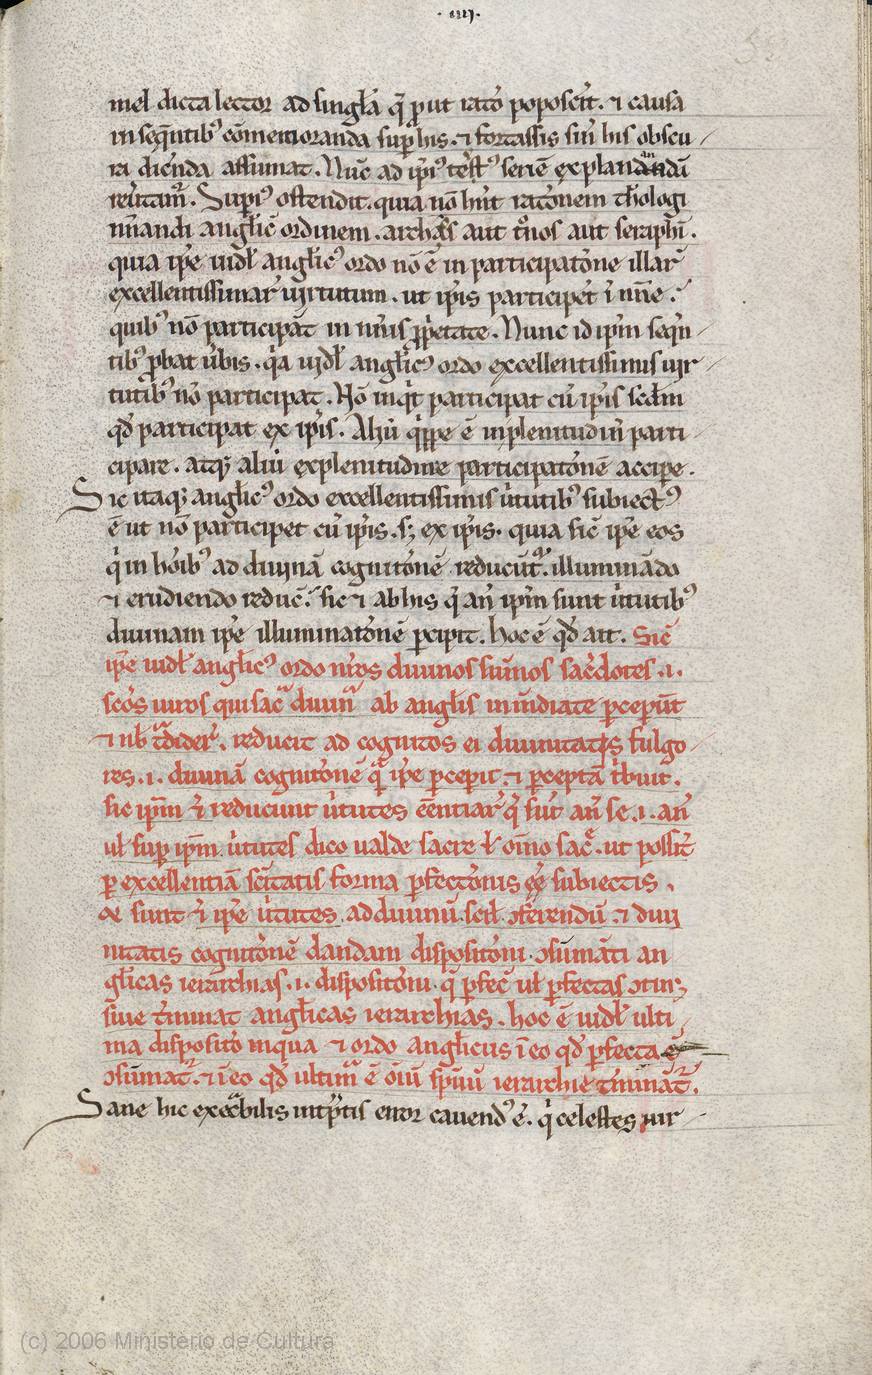 mel dicta lector ad singl'a q̄ p̄ut rat̄o poposc̄it. ⁊ causa
in seq̄ntib⁹ cōmemoranda sup̄ his. ⁊ fortassis siń his obscu
ri dicēnda assumat. Nūc ad ip̄i⁹ seriē explanandā
Supi⁹ ostendit. quia nō hn̄t rat̄onem th̄ologi
nn̄andi angl'ic̄ ordinem. archās aut t̄nos aut seraphī.
quia ip̄e uidl' angl'ic⁹ ordo nō ē in participat̄one illar̄
excellentissimar̄ uirtutum. ut ip̄is participet ī nn̄e.
quib⁹ nō participāt in nr̄is p̄prietate. Nunc id ip̄m seq̄n
tib⁹ p̄bat ūbis. q̇a uidl' angl'ic⁹ ordo excellentissimis uir
tutib⁹ nō participat. Nō inqt participat cū ip̄is sed̄m
qd̄ participat ex ip̄is. Aliū q̇ppe ē in plenitudin̄ parti
cipare. atq; aliū ex plenitudine participat̄onē accipe.
Sic itaq; angl'ic⁹ ordo excellentissimis ūtutib⁹ subiect⁹
ē ut nō participet cū ip̄is. s; ex ip̄is. quia sic̄ ip̄e eos
q̇ in hōib⁹ ad diuinā cognit̄onē reducūt᷑. illuminādo
⁊ erudiendo reduc̄. sic ⁊ ab his q̇ an̄ ip̄m sunt ūtutib⁹
diuinam ip̄e illuminat̄onē p̄cipit. hoc ē qd̄ ait. Sic̄
ip̄e uidl' angl'ic⁹ ordo nr̄os diuinos sūmos sac̄dotes .i.
sc̄os uiros qui sac̄ diuinᵃ ab angl'is inmediate p̄cep̄unt
⁊ nb̄ t̄dider̄. reducit ad cognitos ei diuinitatis fulgo
res .i. diuinā cognit̄onē q̄ ip̄e p̄cepit. ⁊ p̄ceptā t̄buit.
sic ip̄m ⁊ reducunt ūtutes ēentiar̄ q̄ sūt an̄ se .i. an̄
ul' sup ip̄m. ūtutes dico ualde sacre ł om̄o sac̄. ut possit
p̄ excellentiā sc̄itatis forma p̄fect̄onis eē̄ subiectis.
sunt ⁊ ip̄e ūtutes ad diuinū. scil'. ɔferendū ⁊ diui
nitatis cognit̄onē dandam disposit̄oni. ɔsūmāti an
gl'icas ierarchias .i. disposit̄oni. q̄ p̄fec̄ ul' p̄fectas ɔtin;
siue t̄minat angl'icas ierarchias. hoc ē uidl' ulti
ma disposit̄o in qua ⁊ ordo angl'icus ī eo qd̄ p̄fecta ē
ɔsūmat᷑. ⁊ ī eo qd̄ ultimᵃ ē ōiū sp̄uū ierarchie t̄minat᷑.
Sane hic execᵃbilis int̄p̄tis error cauend⁹ ē. q̇ celestes uir